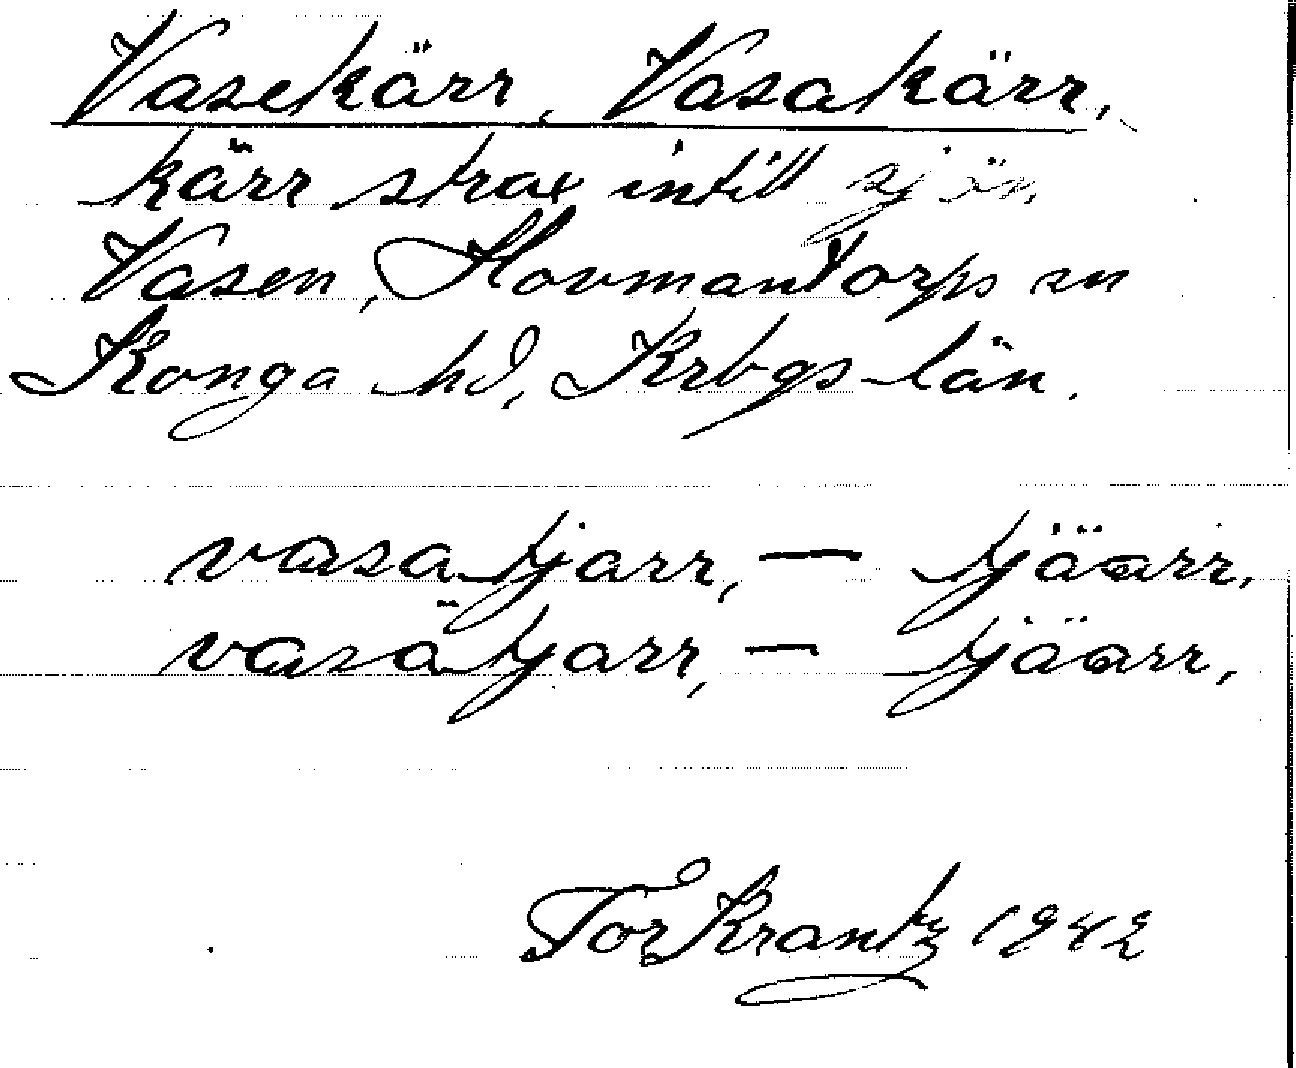 Vasekärr, Vasakärr,
kärr strax intill sjön
Vasen, Hovmantorps sn
Konga hd, Krbgs län.
vasatjarr, — tjäarr,
vasätjarr, — tjäarr,
Tor Krantz 1942